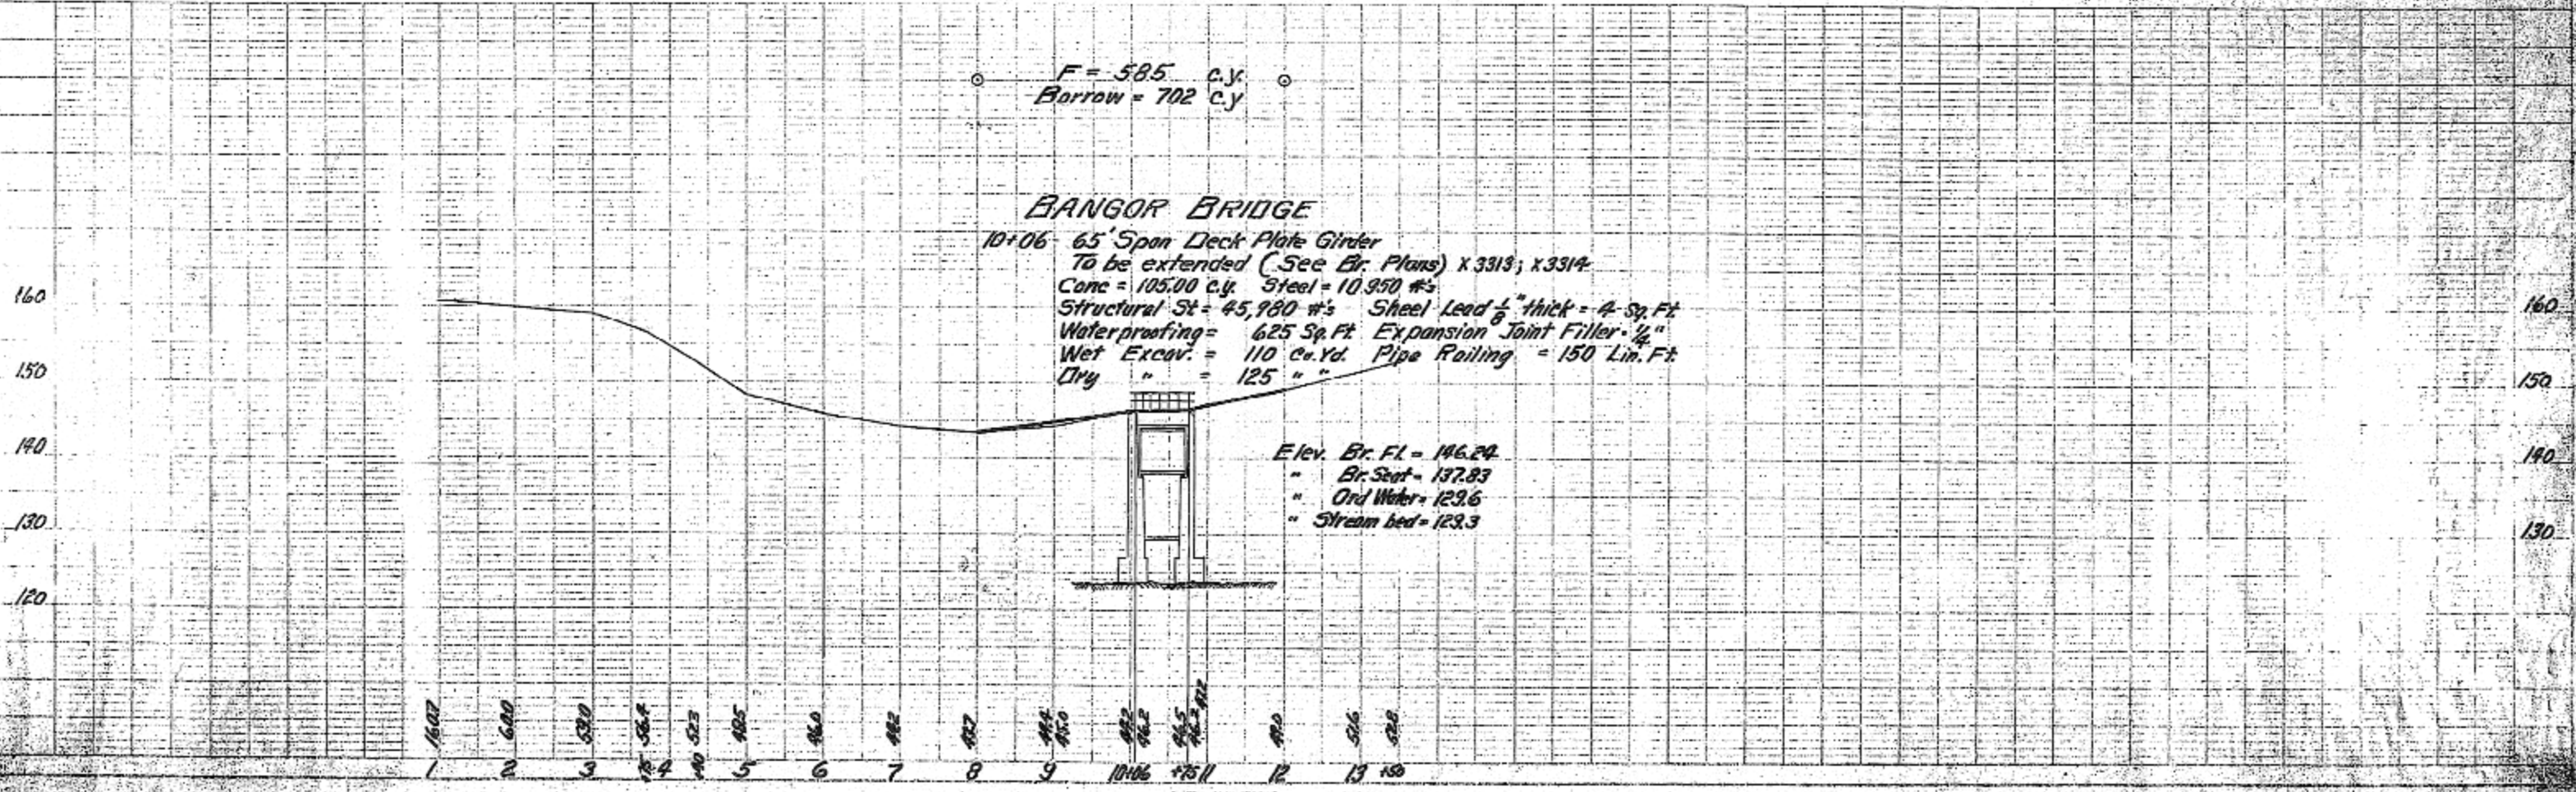 F = 585 c.y.
Borrow = 702 c.y
BANGOR BRIDGE
10+06 65' Span Deck Plate Girder
To be extended (See Br. Plans) X3313; X3314
Conc = 105.00 c.y. Steel = 10,950 #'s
Structural St = 45,980 #'s Sheel Lead 1/8" thick = 4 Sq. Ft
Waterproofing = 625 Sq. Ft. Expansion Joint Filler - 1/4"
Wet Excav. = 110 Cu. Yd. Pipe Railing = 150 Lin. Ft.
Dry " = 125 " "
160 160
150 150
140 140
130 130
120
Elev. Br. Fl. = 146.24
" Br. Seat = 137.83
" Ord Water = 129.6
" Stream bed = 129.3
160.7 60.0 59.0 56.4 52.3 48.5 46.0 43.7 44.4 45.0 46.2 46.5 46.2 47.2 51.6 52.8
1 2 3 +75 4 +40 5 6 7 8 9 10+06 +75 11 12 13 +50